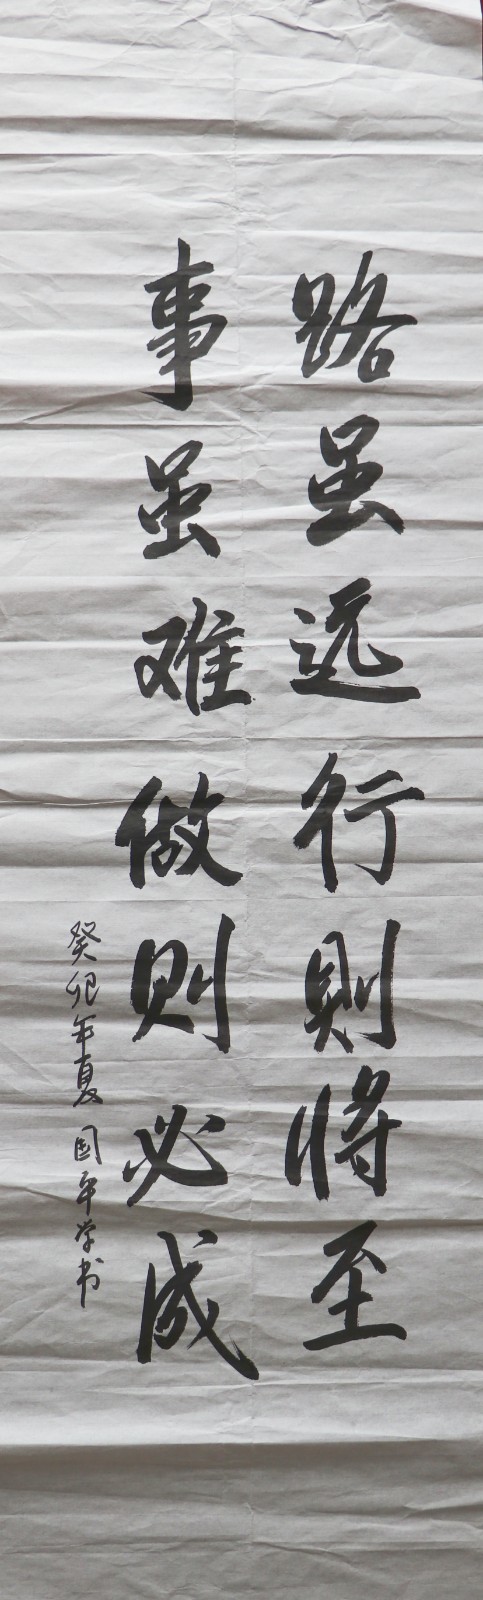 路虽远行则将至
事虽难做则必成
癸卯年夏 国平学书